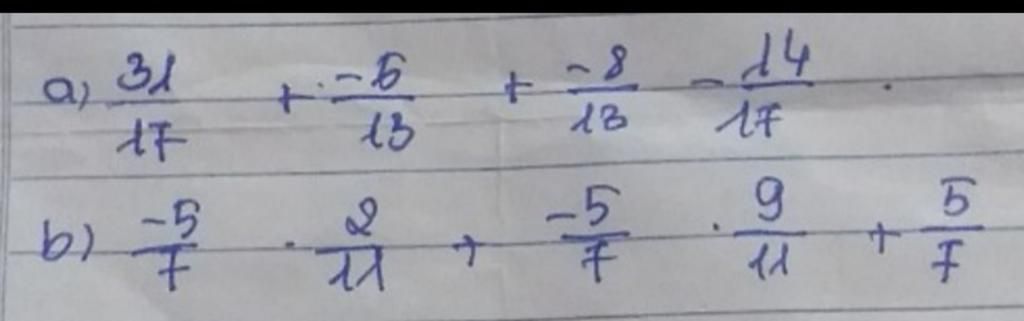 a) 31/17 + -5/13 + -8/13 - 14/17 .
b) -5/7 · 2/11 + -5/7 · 9/11 + 5/7